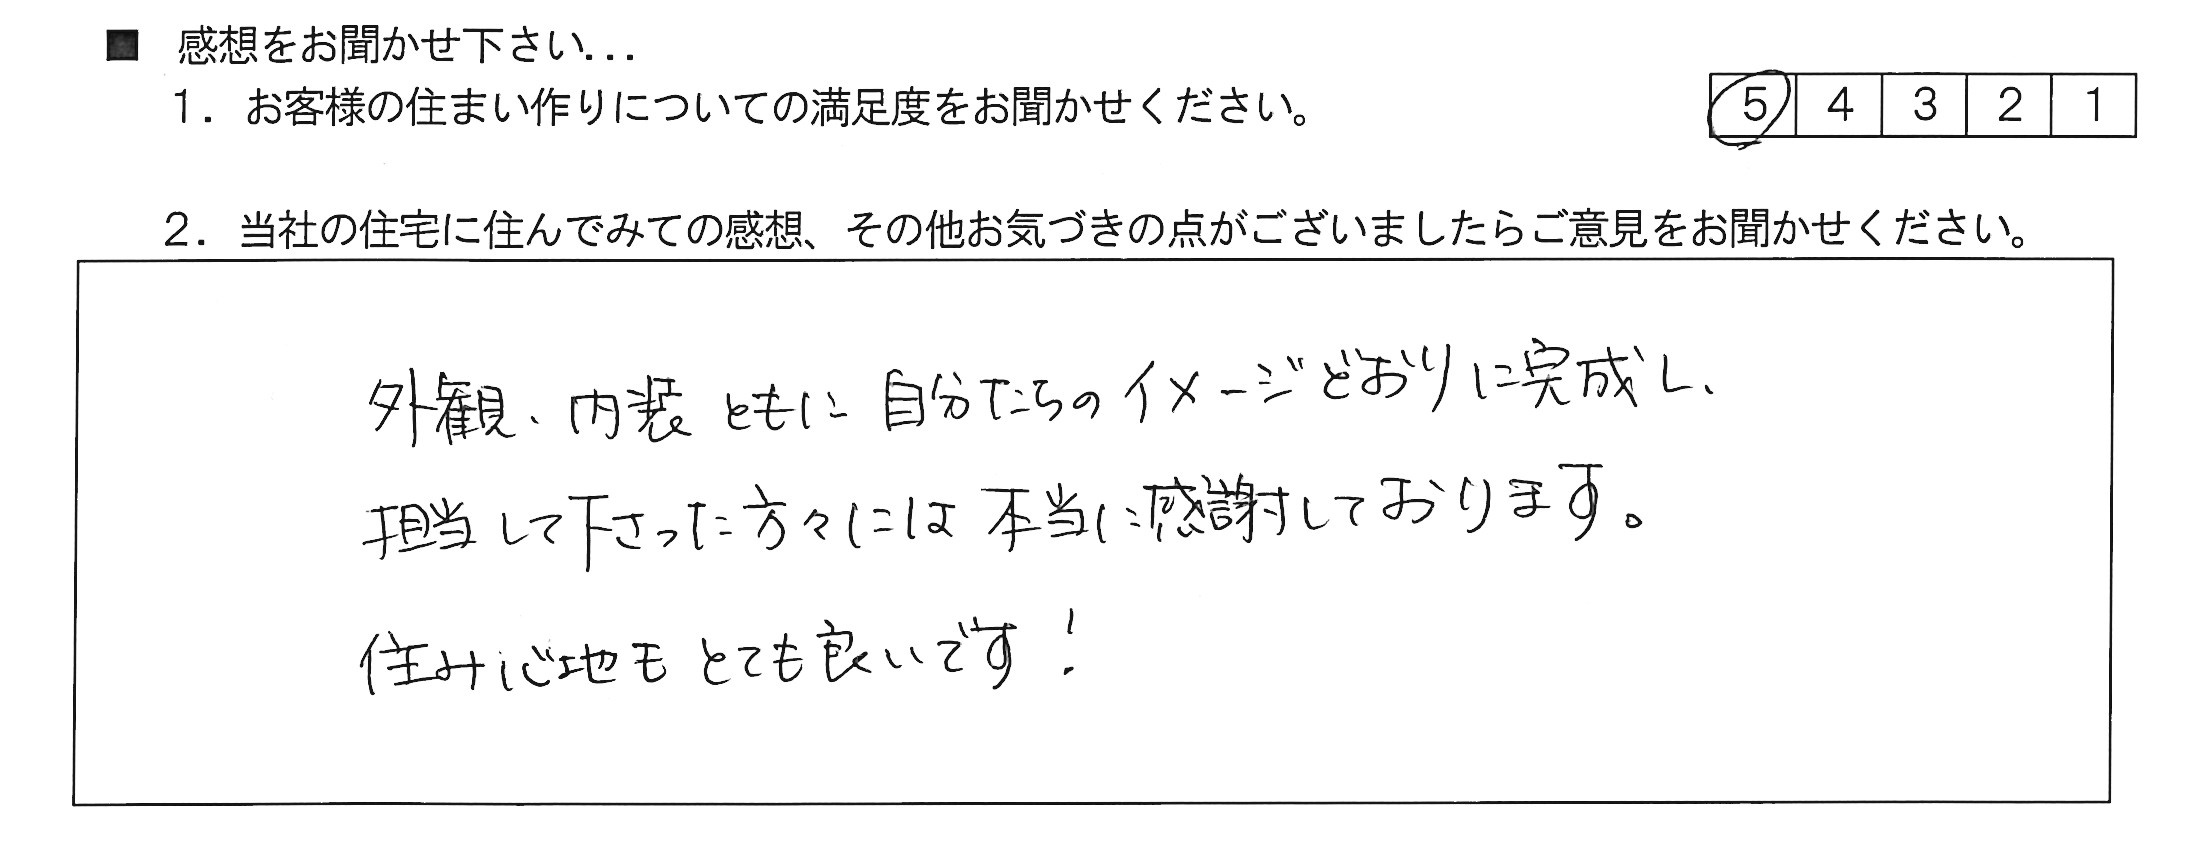 ■ 感想をお聞かせ下さい...
1. お客様の住まい作りについての満足度をお聞かせください。 5 4 3 2 1
2. 当社の住宅に住んでみての感想、その他お気づきの点がございましたらご意見をお聞かせください。
外観、内装ともに自分たちのイメージどおりに完成し、
担当して下さった方々には本当に感謝しております。
住み心地もとても良いです!